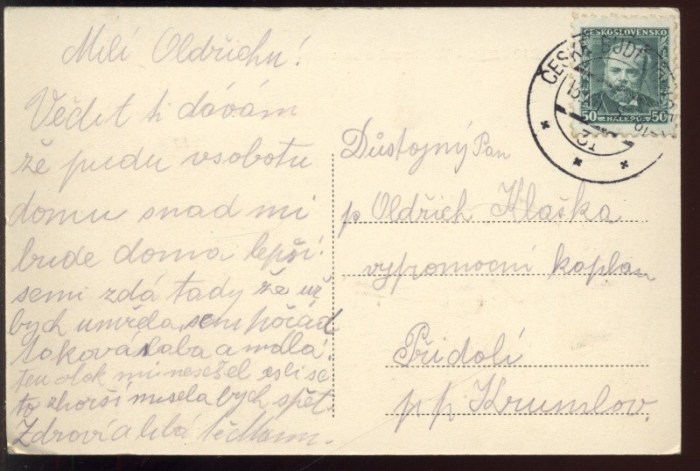 Milí Oldřichu!
Vědět ti dávám
že pudu vsobotu
domu snad mi
bude doma lepší
semi zdá tady že už
bych umřela sem pořád
taková slaba a mdlá.
Jen otok mi nesešel esli se
to zhorší musela bych spět.
Zdraví a libá
ČESKOSLOVENSKO
50 HALÉŘŮ 50
Důstojný Pan
p. Oldřich Hlaška
výpomocní kaplan
Přidolí
p.p. Krumlov.